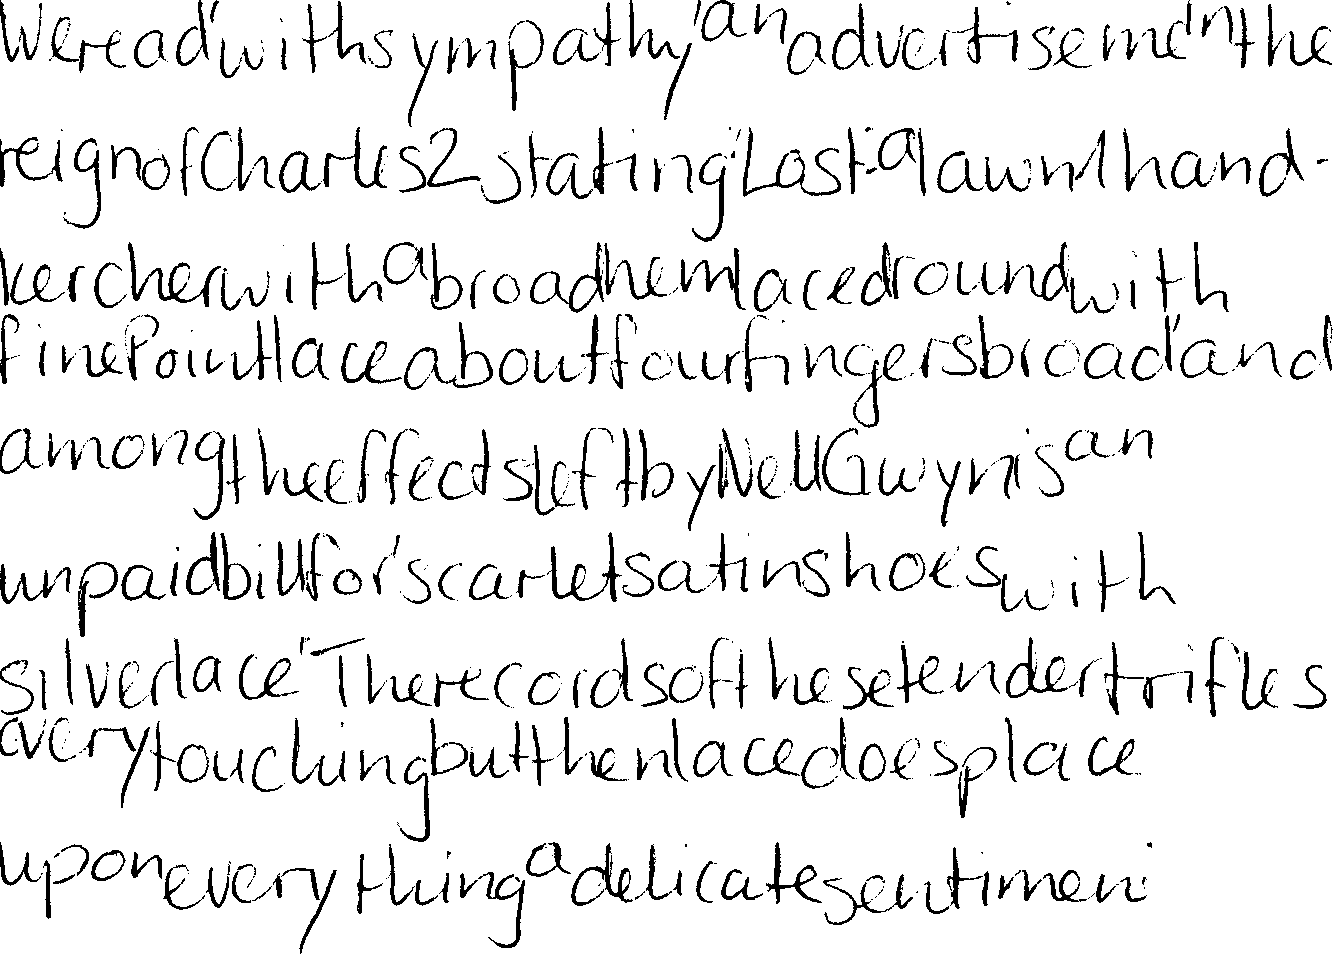 We read with sympathy an advertisemen the
reign of Charles 2 stating 'Lost: a lawn 1 hand-
kercher with a broad hem laced round with
fine Point lace about four fingers broad' and
among the effects left by Nell Gwyn is an
unpaid bill for 'scarlet satin shoes with
silver lace' The records of these tender trifles
every touching but then lace does place
upon everything a delicate sentimen